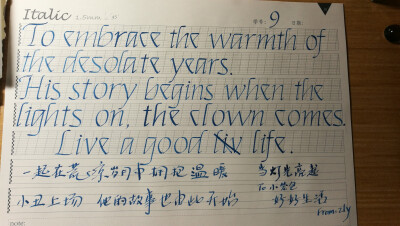 Italic
9
To embrace the warmth of
the desolate years.
His story begins when the
lights on, the clown comes.
Live a good life.
一起在荒凉岁月中拥抱温暖
当灯光亮起
小丑上场 他的故事也由此开始
好好生活
from.zky